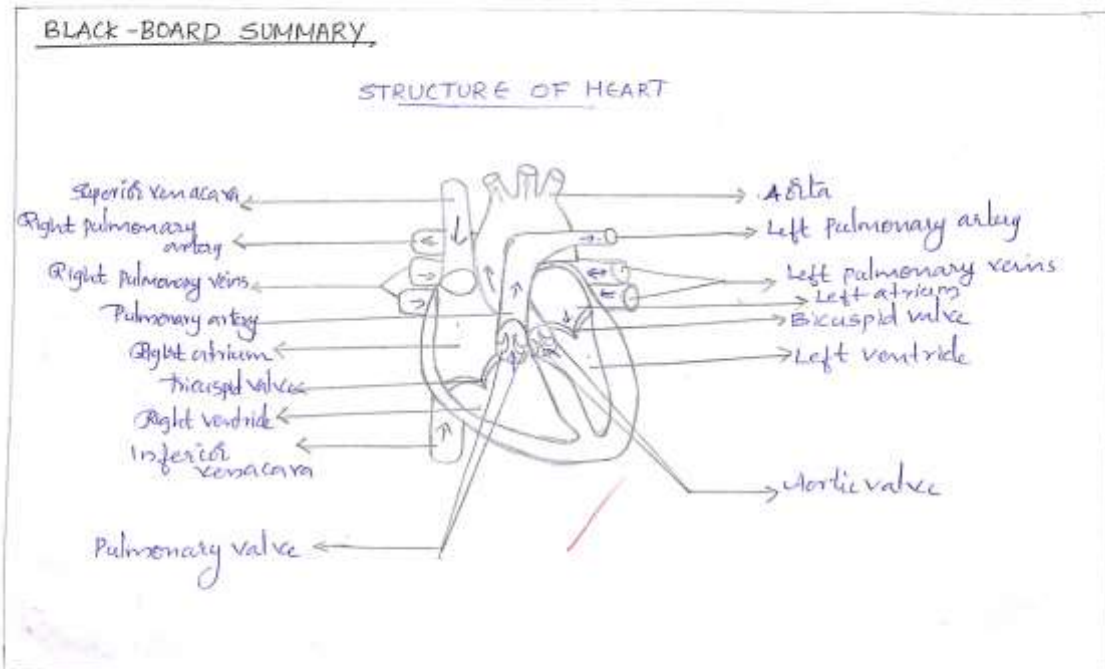 BLACK-BOARD SUMMARY
STRUCTURE OF HEART
Superior venacava
Right pulmonary
artery
Right pulmonary veins
Pulmonary artery
Right atrium
tricuspid valve
Right ventricle
Inferior
venacava
Pulmonary valve
Aorta
Left pulmonary artery
Left pulmonary veins
Left atrium
Bicuspid valve
Left ventricle
Aortic valve